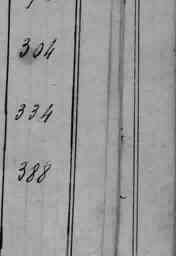 304
334
388